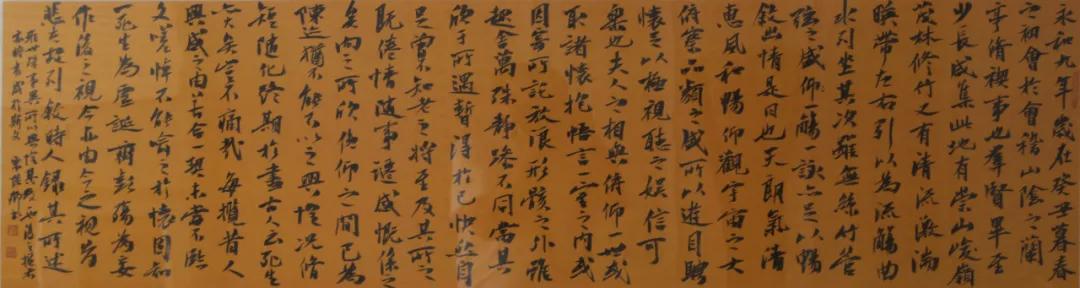 永和九年歲在癸丑暮春
之初會於會稽山陰之蘭
亭脩禊事也羣賢畢至
少長咸集此地有崇山峻嶺
茂林修竹又有清流激湍
暎帶左右引以為流觴曲
水列坐其次雖無絲竹管
弦之盛一觴一詠亦足以暢
敘幽情是日也天朗氣清
惠風和暢仰觀宇宙之大
俯察品類之盛所以遊目騁
懷足以極視聽之娛信可
樂也夫人之相與俯仰一世或
取諸懷抱悟言一室之內或
因寄所託放浪形骸之外雖
趣舍萬殊靜躁不同當其
欣于所遇暫得於己快然自
足曾不知老之將至及其所之
既倦情隨事遷感慨係之
矣向之所欣俛仰之間已為
陳迹猶不能不以之興懷況脩
短隨化終期於盡古人云死生
亦大矣豈不痛哉每攬昔人
興感之由若合一契未嘗不臨
文嗟悼不能喻之於懷固知
一死生為虛誕齊彭殤為妄
作後之視今亦由今之視昔
悲夫故列敘時人錄其所述
雖世殊事異所以興懷其致一也後之攬者
亦將有感於斯文